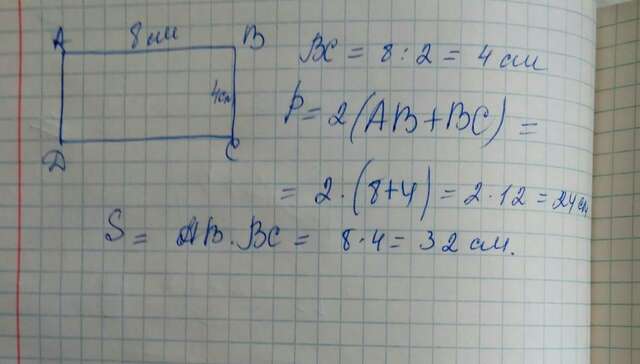 A 8 см B
4см
D C
BC = 8 : 2 = 4 см
P = 2(AB+BC) =
= 2·(8+4) = 2·12 = 24 см
S = AB·BC = 8·4 = 32 см.